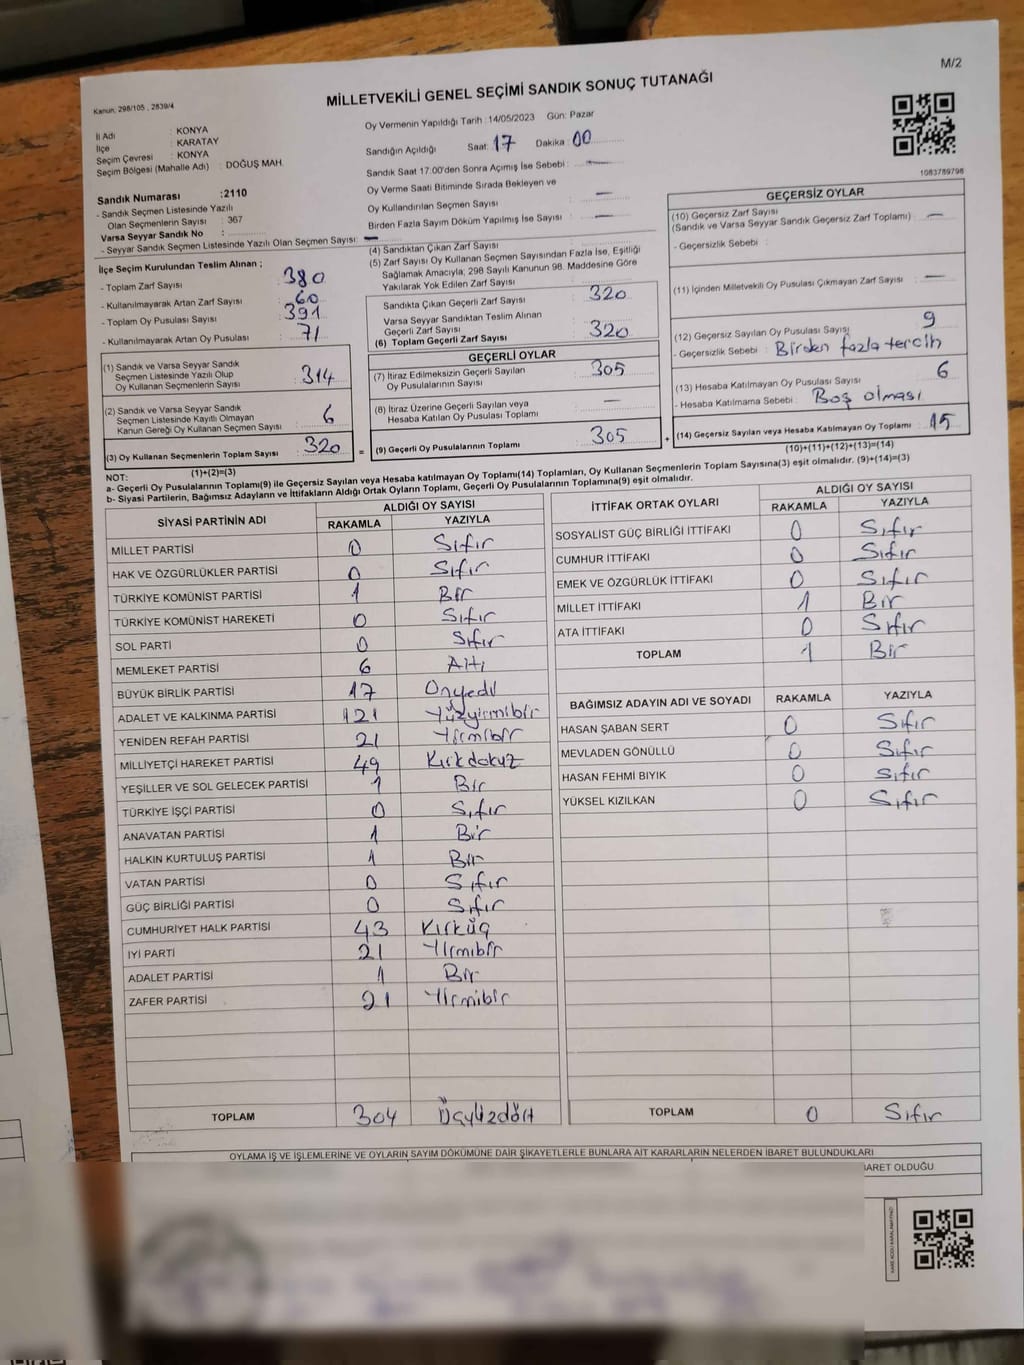 M/2
Kanun, 298/105 , 2839/4
MİLLETVEKİLİ GENEL SEÇİMİ SANDIK SONUÇ TUTANAĞI
İl Adı : KONYA
İlçe : KARATAY
Seçim Çevresi : KONYA
Seçim Bölgesi (Mahalle Adı) : DOĞUŞ MAH.
Sandık Numarası :2110
- Sandık Seçmen Listesinde Yazılı
Olan Seçmenlerin Sayısı : 367
Varsa Seyyar Sandık No :
- Seyyar Sandık Seçmen Listesinde Yazılı Olan Seçmen Sayısı: —
Oy Vermenin Yapıldığı Tarih :14/05/2023 Gün: Pazar
Sandığın Açıldığı Saat: 17 Dakika: 00
Sandık Saat 17:00'den Sonra Açımış İse Sebebi : —
Oy Verme Saati Bitiminde Sırada Bekleyen ve
Oy Kullandırılan Seçmen Sayısı : —
Birden Fazla Sayım Döküm Yapılmış İse Sayısı : —
1083789798
İlçe Seçim Kurulundan Teslim Alınan ;
- Toplam Zarf Sayısı : 380
- Kullanılmayarak Artan Zarf Sayısı : 60
- Toplam Oy Pusulası Sayısı : 391
- Kullanılmayarak Artan Oy Pusulası : 71
(1) Sandık ve Varsa Seyyar Sandık
Seçmen Listesinde Yazılı Olup
Oy Kullanan Seçmenlerin Sayısı : 314
(2) Sandık ve Varsa Seyyar Sandık
Seçmen Listesinde Kayıtlı Olmayan
Kanun Gereği Oy Kullanan Seçmen Sayısı : 6
(3) Oy Kullanan Seçmenlerin Toplam Sayısı : 320
(1)+(2)=(3)
(4) Sandıktan Çıkan Zarf Sayısı
(5) Zarf Sayısı Oy Kullanan Seçmen Sayısından Fazla İse, Eşitliği
Sağlamak Amacıyla, 298 Sayılı Kanunun 98. Maddesine Göre
Yakılarak Yok Edilen Zarf Sayısı :
Sandıkta Çıkan Geçerli Zarf Sayısı : 320
Varsa Seyyar Sandıktan Teslim Alınan
Geçerli Zarf Sayısı :
(6) Toplam Geçerli Zarf Sayısı : 320
GEÇERLİ OYLAR
(7) İtiraz Edilmeksizin Geçerli Sayılan
Oy Pusulalarının Sayısı : 305
(8) İtiraz Üzerine Geçerli Sayılan veya
Hesaba Katılan Oy Pusulası Toplamı : —
= (9) Geçerli Oy Pusulalarının Toplamı : 305 +
GEÇERSİZ OYLAR
(10) Geçersiz Zarf Sayısı
(Sandık ve Varsa Seyyar Sandık Geçersiz Zarf Toplamı) : —
- Geçersizlik Sebebi :
(11) İçinden Milletvekili Oy Pusulası Çıkmayan Zarf Sayısı : —
(12) Geçersiz Sayılan Oy Pusulası Sayısı : 9
- Geçersizlik Sebebi : Birden fazla tercih
(13) Hesaba Katılmayan Oy Pusulası Sayısı : 6
- Hesaba Katılmama Sebebi : Boş olması
(14) Geçersiz Sayılan veya Hesaba Katılmayan Oy Toplamı : 15
(10)+(11)+(12)+(13)=(14)
NOT:
a- Geçerli Oy Pusulalarının Toplamı(9) ile Geçersiz Sayılan veya Hesaba katılmayan Oy Toplamı(14) Toplamları, Oy Kullanan Seçmenlerin Toplam Sayısına(3) eşit olmalıdır. (9)+(14)=(3)
b- Siyasi Partilerin, Bağımsız Adayların ve İttifakların Aldığı Ortak Oyların Toplamı, Geçerli Oy Pusulalarının Toplamına(9) eşit olmalıdır.
SİYASİ PARTİNİN ADI ALDIĞI OY SAYISI
RAKAMLA YAZIYLA
MİLLET PARTİSİ 0 Sıfır
HAK VE ÖZGÜRLÜKLER PARTİSİ 0 Sıfır
TÜRKİYE KOMÜNİST PARTİSİ 1 Bir
TÜRKİYE KOMÜNİST HAREKETİ 0 Sıfır
SOL PARTİ 0 Sıfır
MEMLEKET PARTİSİ 6 Altı
BÜYÜK BİRLİK PARTİSİ 17 Onyedi
ADALET VE KALKINMA PARTİSİ 121 Yüzyirmibir
YENİDEN REFAH PARTİSİ 21 Yirmibir
MİLLİYETÇİ HAREKET PARTİSİ 49 Kırkdokuz
YEŞİLLER VE SOL GELECEK PARTİSİ 1 Bir
TÜRKİYE İŞÇİ PARTİSİ 0 Sıfır
ANAVATAN PARTİSİ 1 Bir
HALKIN KURTULUŞ PARTİSİ 1 Bir
VATAN PARTİSİ 0 Sıfır
GÜÇ BİRLİĞİ PARTİSİ 0 Sıfır
CUMHURİYET HALK PARTİSİ 43 Kırküç
İYİ PARTİ 21 Yirmibir
ADALET PARTİSİ 1 Bir
ZAFER PARTİSİ 21 Yirmibir
TOPLAM 304 Üçyüzdört
İTTİFAK ORTAK OYLARI ALDIĞI OY SAYISI
RAKAMLA YAZIYLA
SOSYALİST GÜÇ BİRLİĞİ İTTİFAKI 0 Sıfır
CUMHUR İTTİFAKI 0 Sıfır
EMEK VE ÖZGÜRLÜK İTTİFAKI 0 Sıfır
MİLLET İTTİFAKI 1 Bir
ATA İTTİFAKI 0 Sıfır
TOPLAM 1 Bir
BAĞIMSIZ ADAYIN ADI VE SOYADI RAKAMLA YAZIYLA
HASAN ŞABAN SERT 0 Sıfır
MEVLADEN GÖNÜLLÜ 0 Sıfır
HASAN FEHMİ BIYIK 0 Sıfır
YÜKSEL KIZILKAN 0 Sıfır
TOPLAM 0 Sıfır
OYLAMA İŞ VE İŞLEMLERİNE VE OYLARIN SAYIM DÖKÜMÜNE DAİR ŞİKAYETLERLE BUNLARA AİT KARARLARIN NELERDEN İBARET BULUNDUKLARI
BARET OLDUĞU